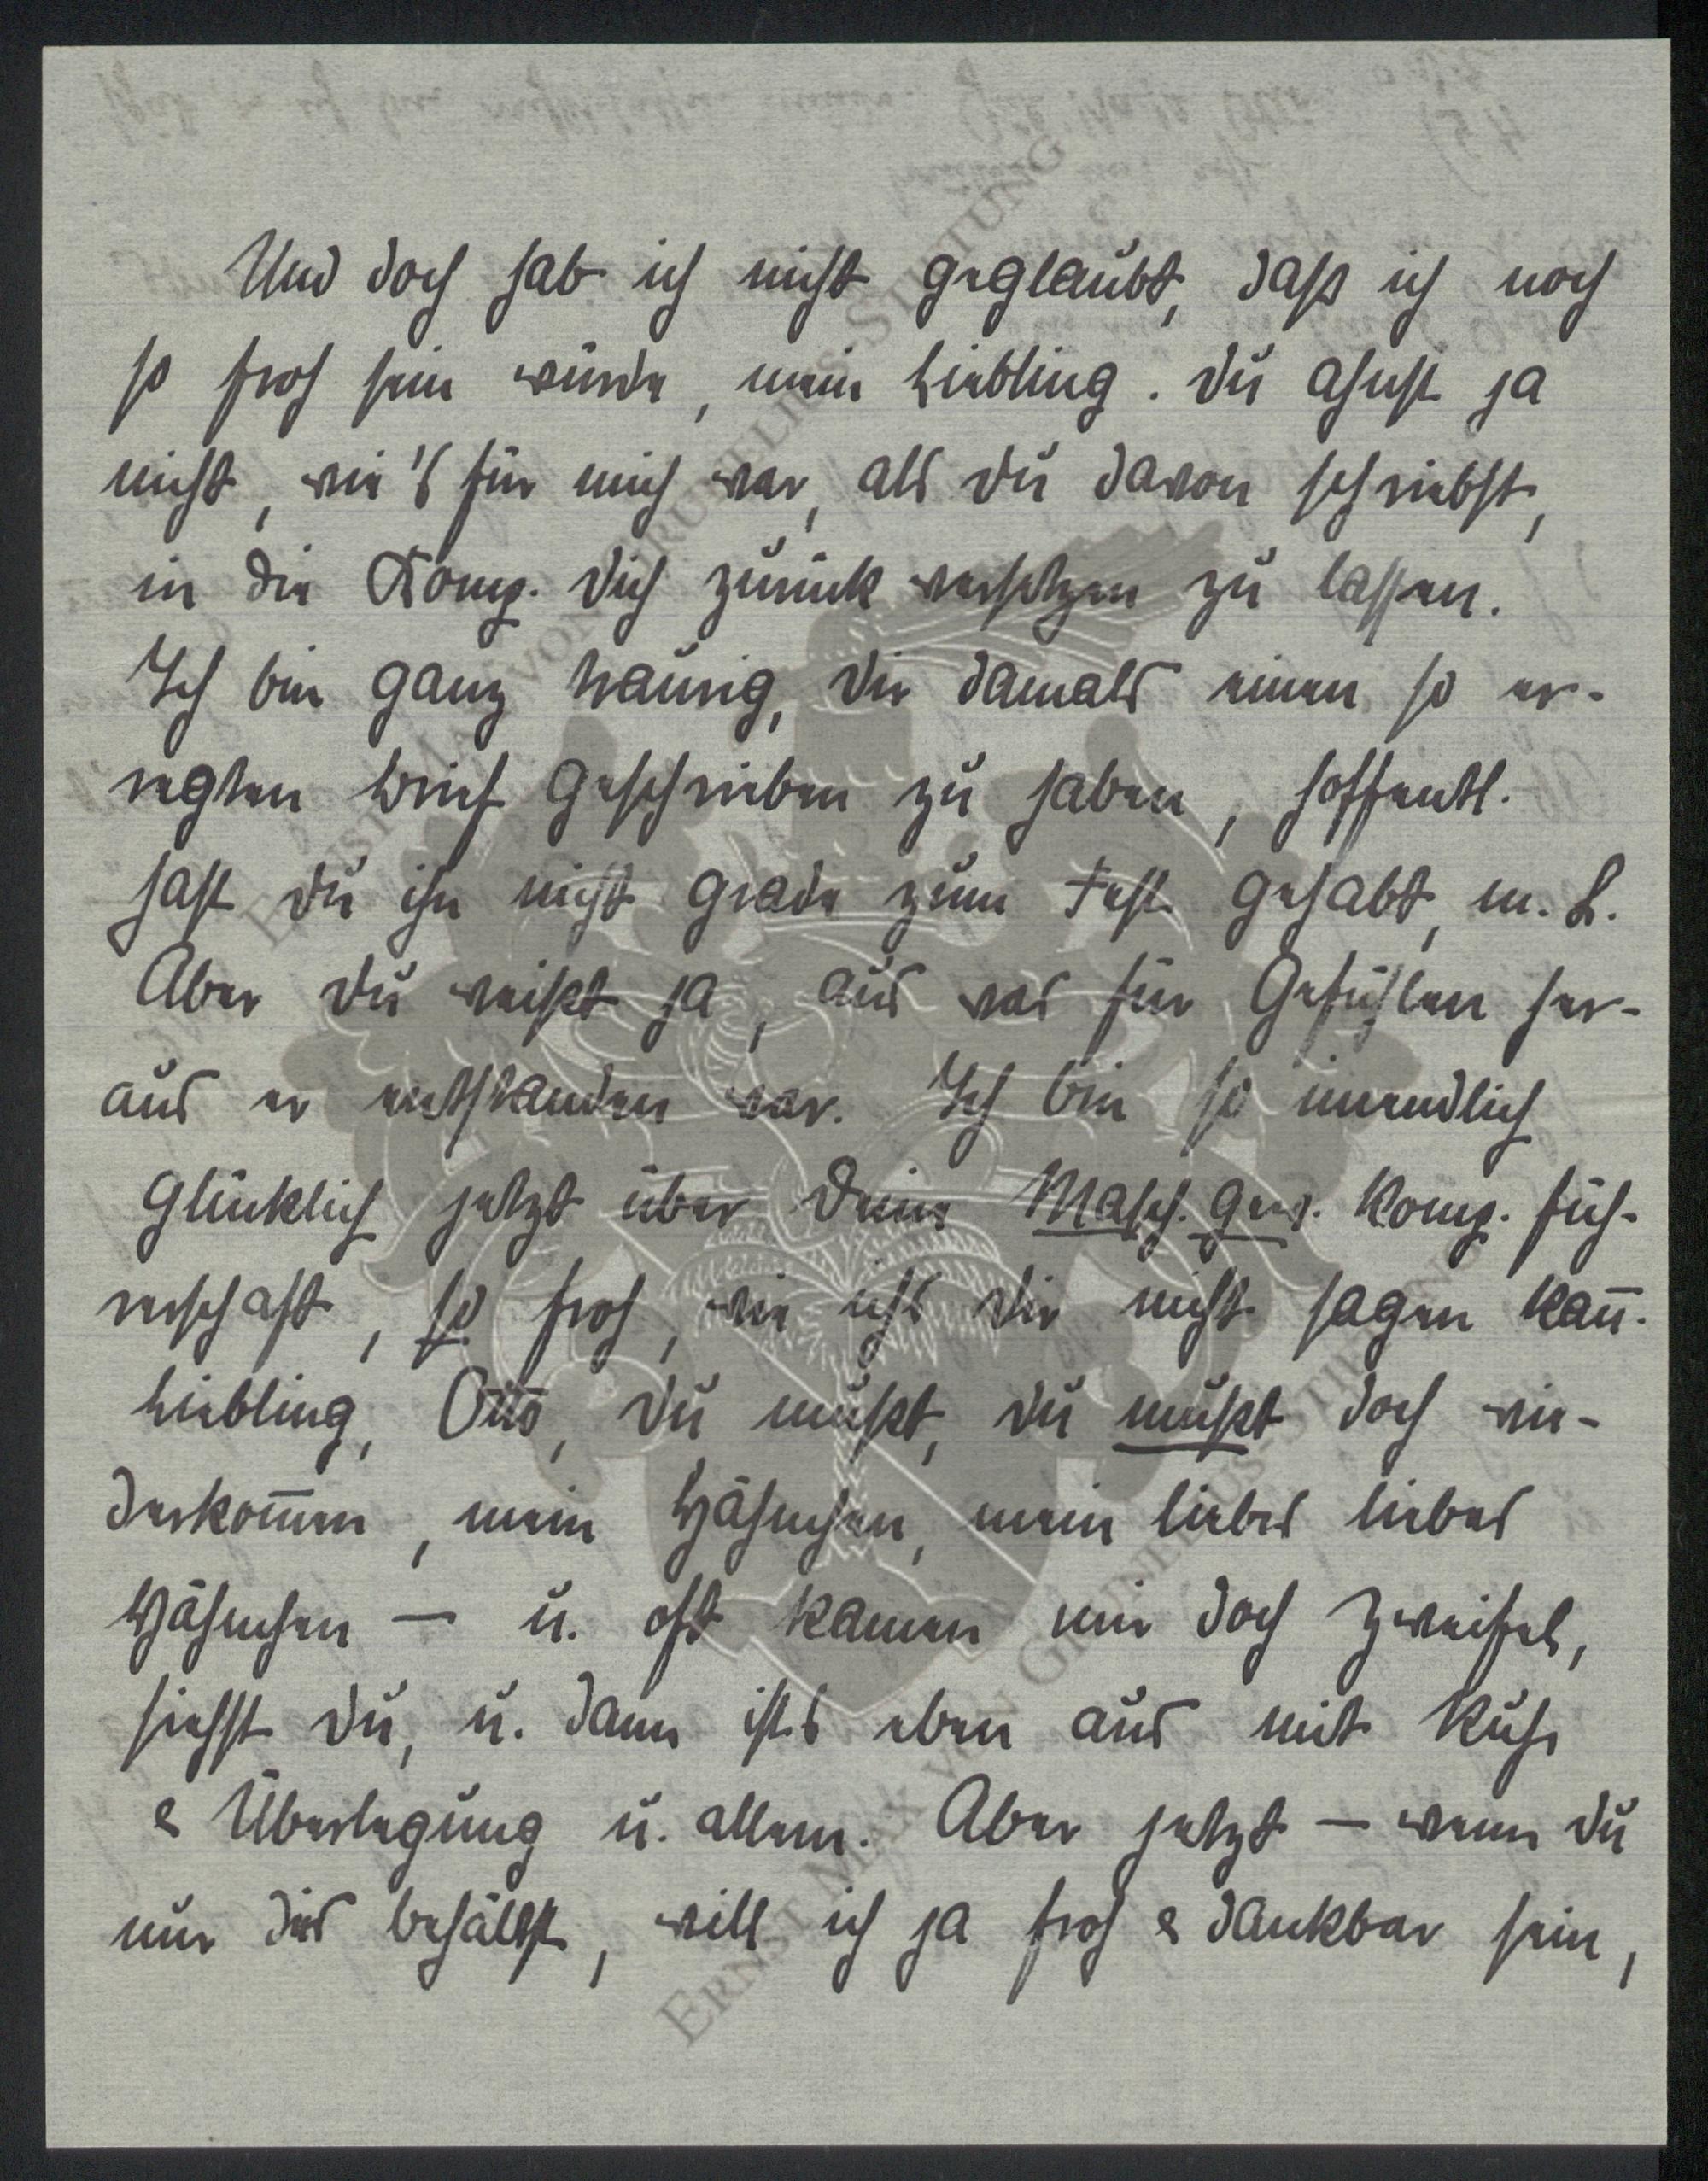 Und doch hab ich nicht geglaubt, daß ich noch
so froh sein würde, mein Liebling. Du ahnst ja
nicht, wie's für mich war, als Du davon schriebst,
in die Komp. Dich zurück versetzen zu lassen.
Ich bin ganz traurig, Dir damals einen so er-
regten Brief geschrieben zu haben, hoffentl.
hast Du ihn nicht grade zum Fest gehabt, m. L.
Aber Du weißt ja, aus was für Gefühlen her-
aus er entstanden war. Ich bin so unendlich
glücklich jetzt über Deine Masch. Gew. Komp. füh-
rerschaft, so froh, wie ichs Dir nicht sagen kan̄.
Liebling, Otto, Du mußt, Du mußt doch wie-
derkom̄en, mein Hähnchen, mein liebes liebes
Hähnchen — u. oft kamen mir doch Zweifel,
siehst Du, u. dann ists eben aus mit Ruhe
& Überlegung u. allem. Aber jetzt — wenn Du
nur dies behältst, will ich ja froh & dankbar sein,
ERNST MAX VON GRUNELIUS-STIFTUNG
ERNST MAX VON GRUNELIUS-STIFTUNG